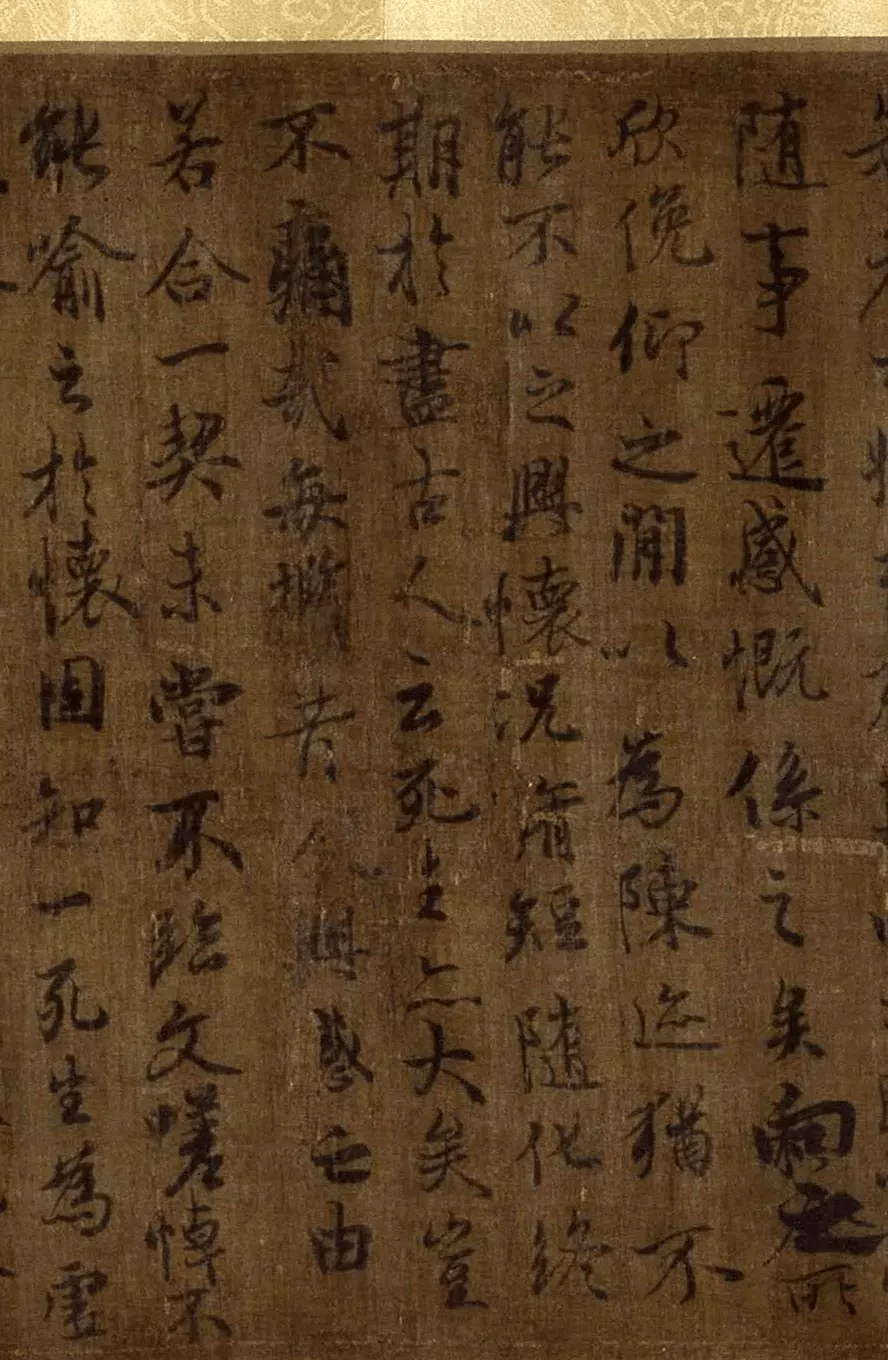 随事遷感慨係之矣向之所
欣俛仰之閒以為陳迹猶不
能不以之興懷况脩短随化終
期於盡古人云死生亦大矣豈
不痛哉每攬昔人興感之由
若合一契未嘗不臨文嗟悼不
能喻之於懷固知一死生為虛